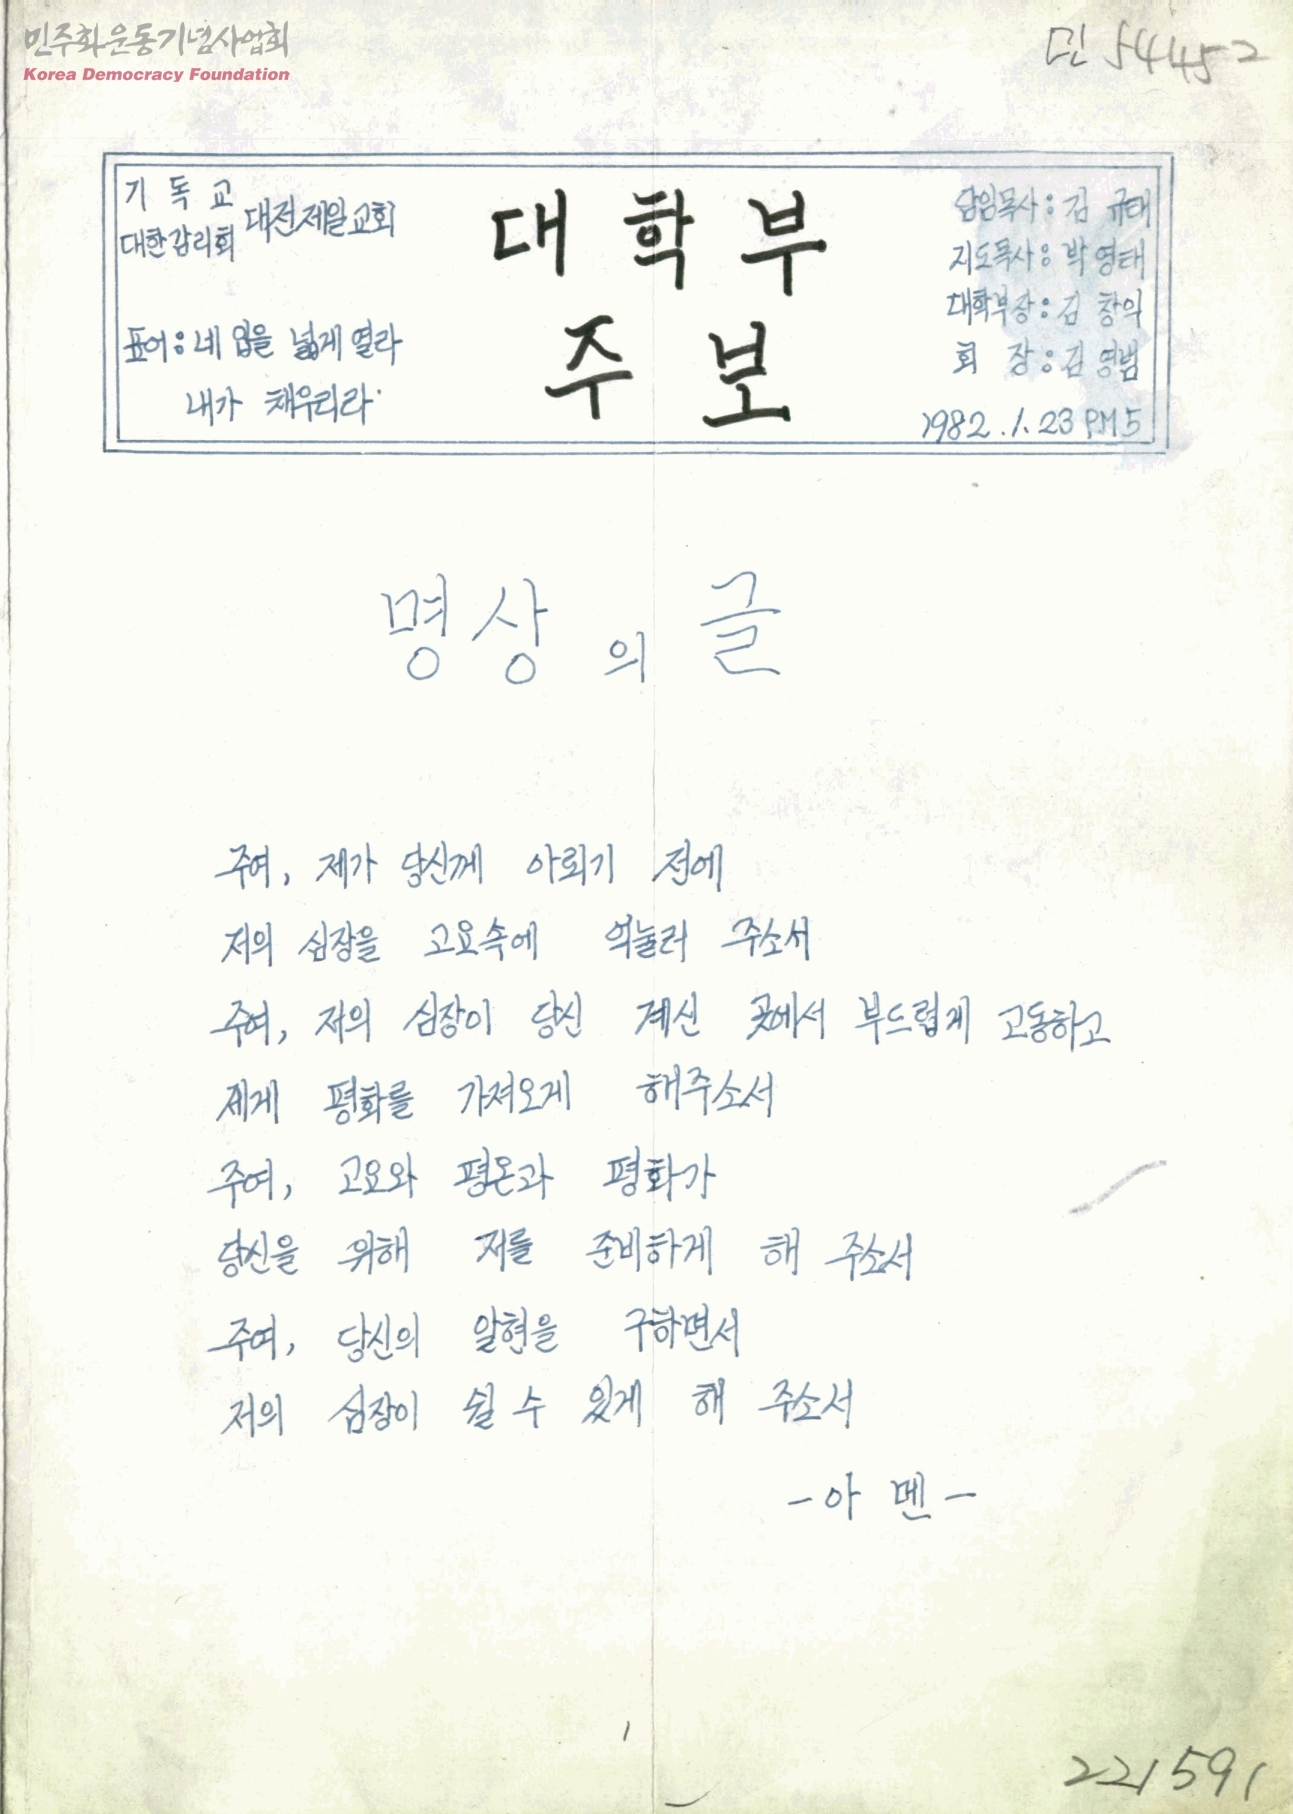 민주화운동기념사업회
Korea Democracy Foundation
민 54452
기독교
대한감리회 대전제일교회
표어: 네 입을 넓게 열라
내가 채우리라
대학부
주보
담임목사: 김 규태
지도목사: 박 영태
대학부장: 김 창의
회 장: 김 영범
1982. 1. 23 PM 5
명상의 글
주여, 제가 당신께 아뢰기 전에
저의 심장을 고요속에 억눌러 주소서
주여, 저의 심장이 당신 계신 곳에서 부드럽게 고동하고
제게 평화를 가져오게 해주소서
주여, 고요와 평온과 평화가
당신을 위해 저를 준비하게 해 주소서
주여, 당신의 알현을 구하면서
저의 심장이 쉴 수 있게 해 주소서
- 아 멘 -
1
221591